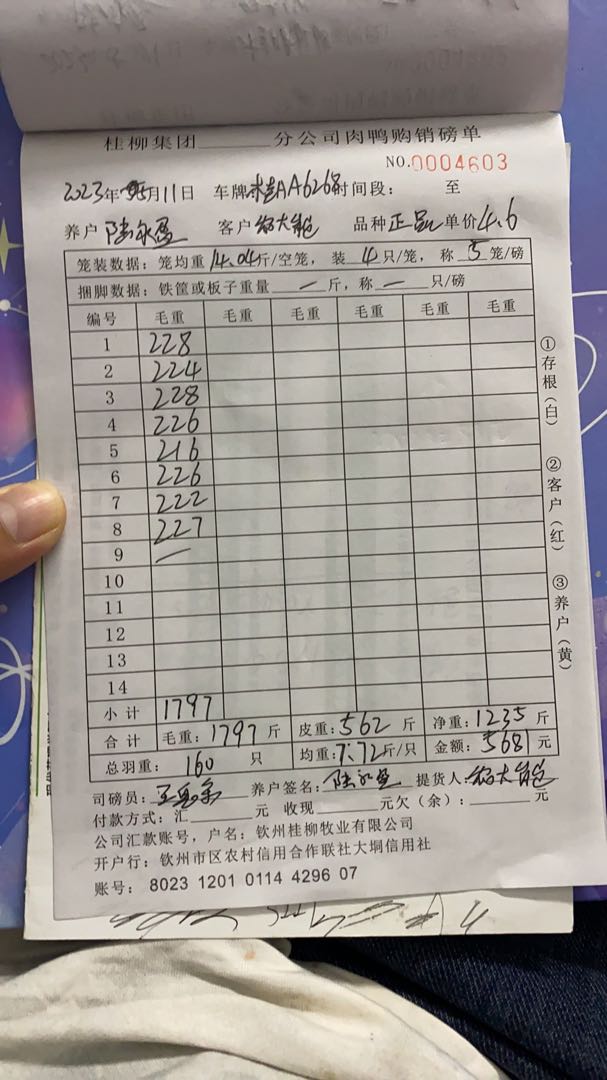 桂柳集团______分公司肉鸭购销磅单
NO.0004603
2023年05月11日 车牌桂AA6268时间段： 至
养户 陆永盈 客户 大 品种 正品 单价4.6
笼装数据：笼均重14.04斤/空笼，装 4 只/笼，称 5 笼/磅
捆脚数据：铁筐或板子重量 — 斤，称 — 只/磅
编号 毛重 毛重 毛重 毛重 毛重 毛重
1 228
2 224
3 228
4 226
5 216
6 226
7 222
8 227
9 —
10
11
12
13
14
小计 1797
合计 毛重：1797 斤 皮重：562 斤 净重：1235 斤
总羽重： 160 只 均重：7.72斤/只 金额：5681 元
司磅员：王 养户签名：陆永盈 提货人：大
付款方式：汇______元 收现______元欠（余）：______元
公司汇款账号，户名：钦州桂柳牧业有限公司
开户行：钦州市区农村信用合作联社大垌信用社
账号：8023 1201 0114 4296 07
①存根（白）
②客户（红）
③养户（黄）